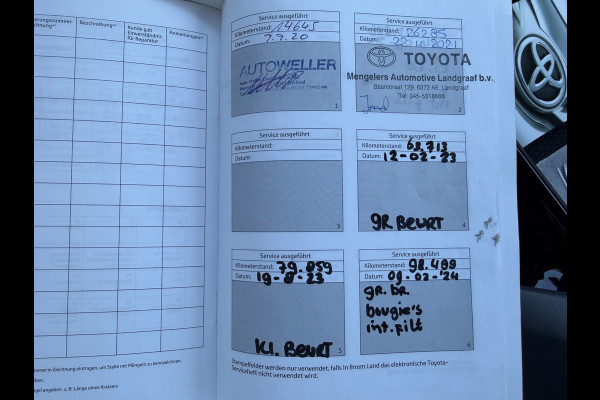 Beschreibung**
Kunde gab
Einverständnis
für Reparatur
Anmerkungen**
Service ausgeführt
Kilometerstand: 14645
Datum: 7.9.20
AUTOWELLER
1
Service ausgeführt
Kilometerstand: 26285
Datum: 22.10.2021
TOYOTA
Mengelers Automotive Landgraaf b.v.
Baanstraat 129, 6372 AE Landgraaf
Tel: 045-5318888
2
Service ausgeführt
Kilometerstand:
Datum:
3
Service ausgeführt
Kilometerstand: 68.713
Datum: 12-02-23
gR BEURT
4
Service ausgeführt
Kilometerstand: 79.059
Datum: 19-8-23
KL. BEURT
5
Service ausgeführt
Kilometerstand: 98.499
Datum: 09-02-24
gR. BR
bougie's
int. filt
6
Stempelfelder werden nur verwendet, falls in Ihrem Land das elektronische Toyota-
Serviceheft nicht verwendet wird.